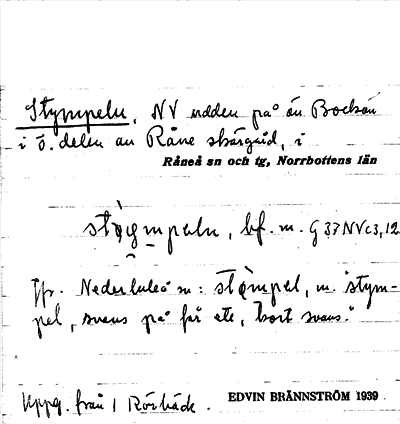 Stympeln, NV udden på ön Bockön
i ö. delen av Råne skärgård, i
Råneå sn och tg, Norrbottens län
bf. m. G 37 NV c3,12
Jfr. Nederluleå sn: m. "stym-
pel, svans på får etc, kort svans."
Uppg. från 1 Rörbäck.
EDVIN BRÄNNSTRÖM 1939